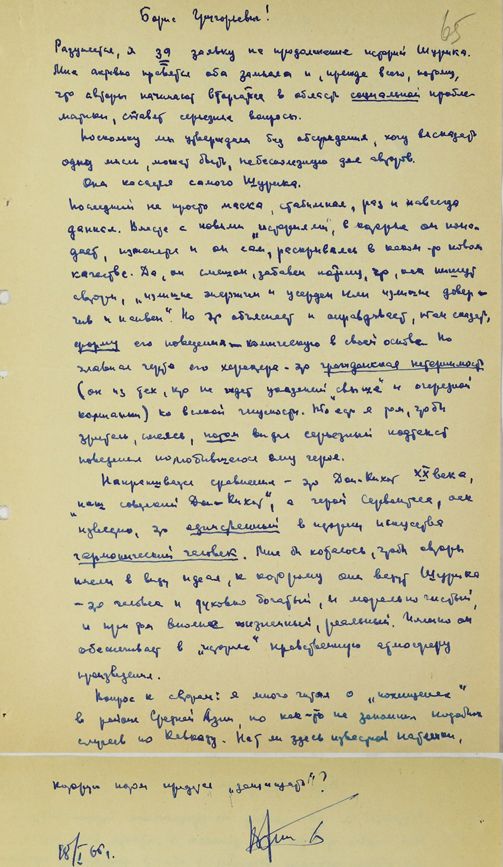 65
Борис Григорьевич!
Разумеется, я за заявку на продолжение историй Шурика.
Мне активно нравятся оба замысла и, прежде всего, потому,
что авторы начинают вторгаться в область социальной пробле-
матики, ставят серьезные вопросы.
Поскольку мы утверждаем без обсуждения, хочу высказать
одну мысль, может быть, небесполезную для авторов.
Она касается самого Шурика.
Последний не просто маска, стабильная, раз и навсегда
данная. Вместе с новыми „историями", в которые он попа-
дает, изменяется и он сам, раскрываясь в каком-то новом
качестве. Да, он смешон, забавен потому, что, как пишут
авторы, „излишне энергичен и усерден или излишне довер-
чив и наивен". Но это объясняет и оправдывает, так сказать,
форму его поведения – комическую в своей основе. Но
главная черта его характера – это гражданская нетерпимость
(он из тех, кто не ждет указаний свыше и очередной
кампании) ко всякой гнусности. И я за то, чтобы
зритель, смеясь, потом видел серьезный подтекст
поведения полюбившегося ему героя.
Напрашивается сравнение – это Дон-Кихот XX века,
„наш советский Дон-Кихот", а герой Сервантеса, как
известно, это единственный в истории искусства
гармонический человек. Мне бы хотелось, чтобы авторы
имели в виду идеал, к которому они ведут Шурика
– это человек и духовно богатый, и морально чистый,
и при том вполне жизненный, реальный. Именно он
обеспечивает в „историях" нравственную атмосферу
произведения.
Вопрос к авторам: я много читал о „похищениях"
в районе Средней Азии, но как-то не запомнил подобных
случаев по Кавказу. Нет ли здесь известной натяжки,
которую потом придется „защищать"?
18/I 66 г.